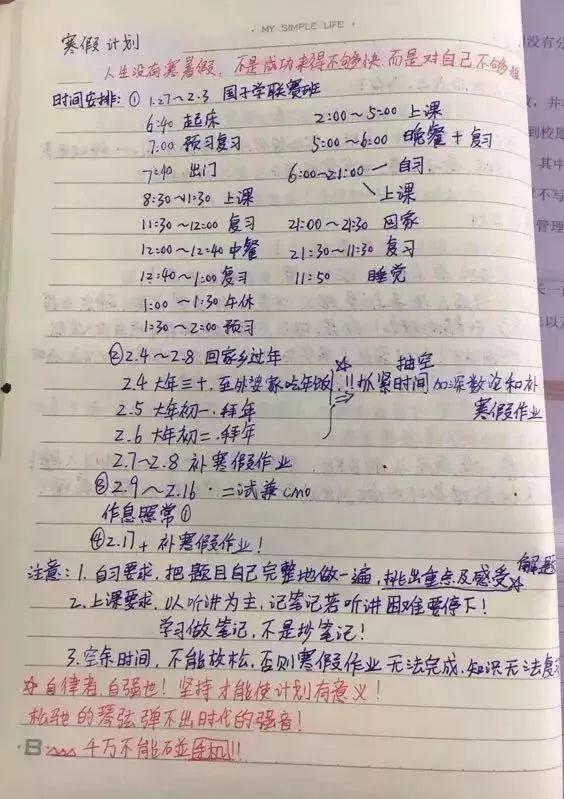 · MY SIMPLE LIFE ·
寒假计划
人生没有寒暑假，不是成功来得不够快，而是对自己不够狠
时间安排：① 1.27～2.3 国子学联赛班
6:40 起床 2:00～5:00 上课
7:00 预习复习 5:00～6:00 晚餐+复习
7:40 出门 6:00～21:00 自习
上课
8:30～11:30 上课
11:30～12:00 复习 21:00～21:30 回家
12:00～12:40 中餐 21:30～11:30 复习
12:40～1:00 复习 11:50 睡觉
1:00～1:30 午休
1:30～2:00 预习
② 2.4～2.8 回家乡过年
2.4 大年三十．至外婆家吃年饭 !!抽空抓紧时间加深数论和补寒假作业
2.5 大年初一．拜年
2.6 大年初二．拜年
2.7～2.8 补寒假作业
③ 2.9～2.16．二试兼CMO
作息照常①
④ 2.17+ 补寒假作业！
注意：1.自习要求，把题目自己完整地做一遍，挑出重点及解题感受
2.上课要求，以听讲为主，记笔记若听讲困难要停下！
学习做笔记，不是抄笔记！
3.空余时间，不能放松，否则寒假作业无法完成，知识无法复
☆自律者，自强也！坚持才能使计划有意义！
松弛的琴弦弹不出时代的强音！
B: 千万不能碰手机!!!
没有分
到校
其中
不写
管理